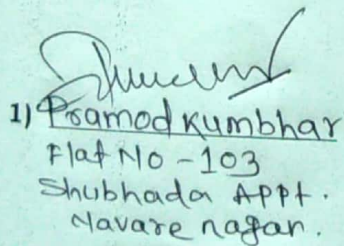 1) Pramod Kumbhar
Flat No - 103
Shubhada APPt.
Navare nagar.